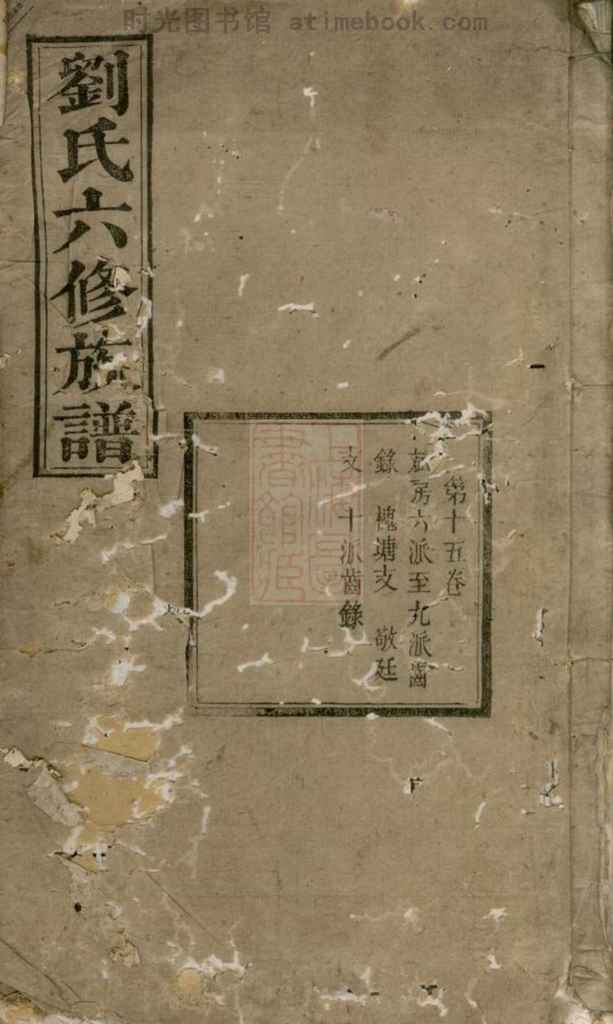 时光图书馆 atimebook.com
劉氏六修族譜
第十五卷
房六派至九派齒
錄 槐塘支 敬廷
支 十派齒錄